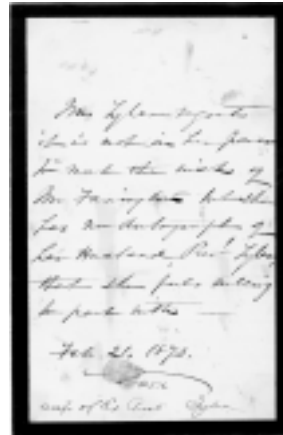 Mrs Tyler regrets
it is not in her power
to meet the wishes of
Mr Farington. She
has no Autographs of
her Husband Prest Tyler
that she feels willing
to part with —
Feb. 21. 1870.
wife of Ex Prest Tyler